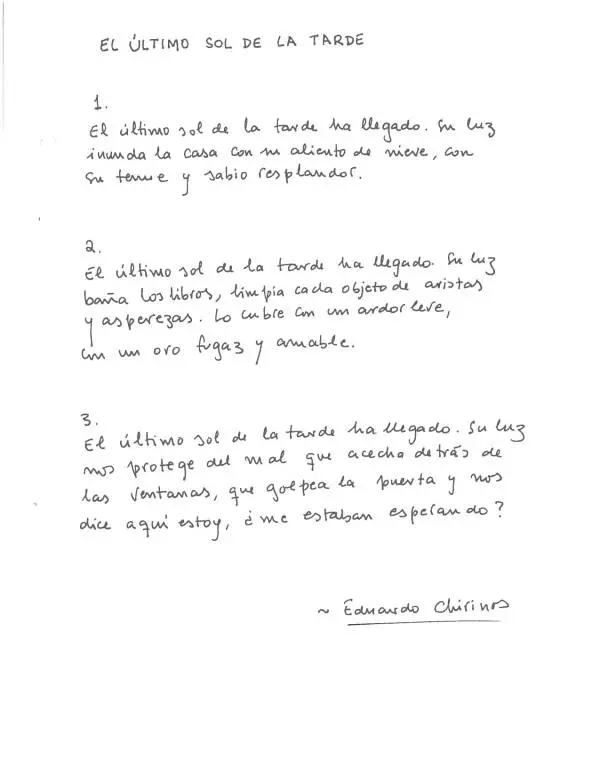 EL ÚLTIMO SOL DE LA TARDE
1.
El último sol de la tarde ha llegado. Su luz
inunda la casa con su aliento de nieve, con
su tenue y sabio resplandor.
2.
El último sol de la tarde ha llegado. Su luz
baña los libros, limpia cada objeto de aristas
y asperezas. Lo cubre con un ardor leve,
con un oro fugaz y amable.
3.
El último sol de la tarde ha llegado. Su luz
nos protege del mal que acecha detrás de
las ventanas, que golpea la puerta y nos
dice aquí estoy, ¿me estaban esperando?
~ Eduardo Chirinos